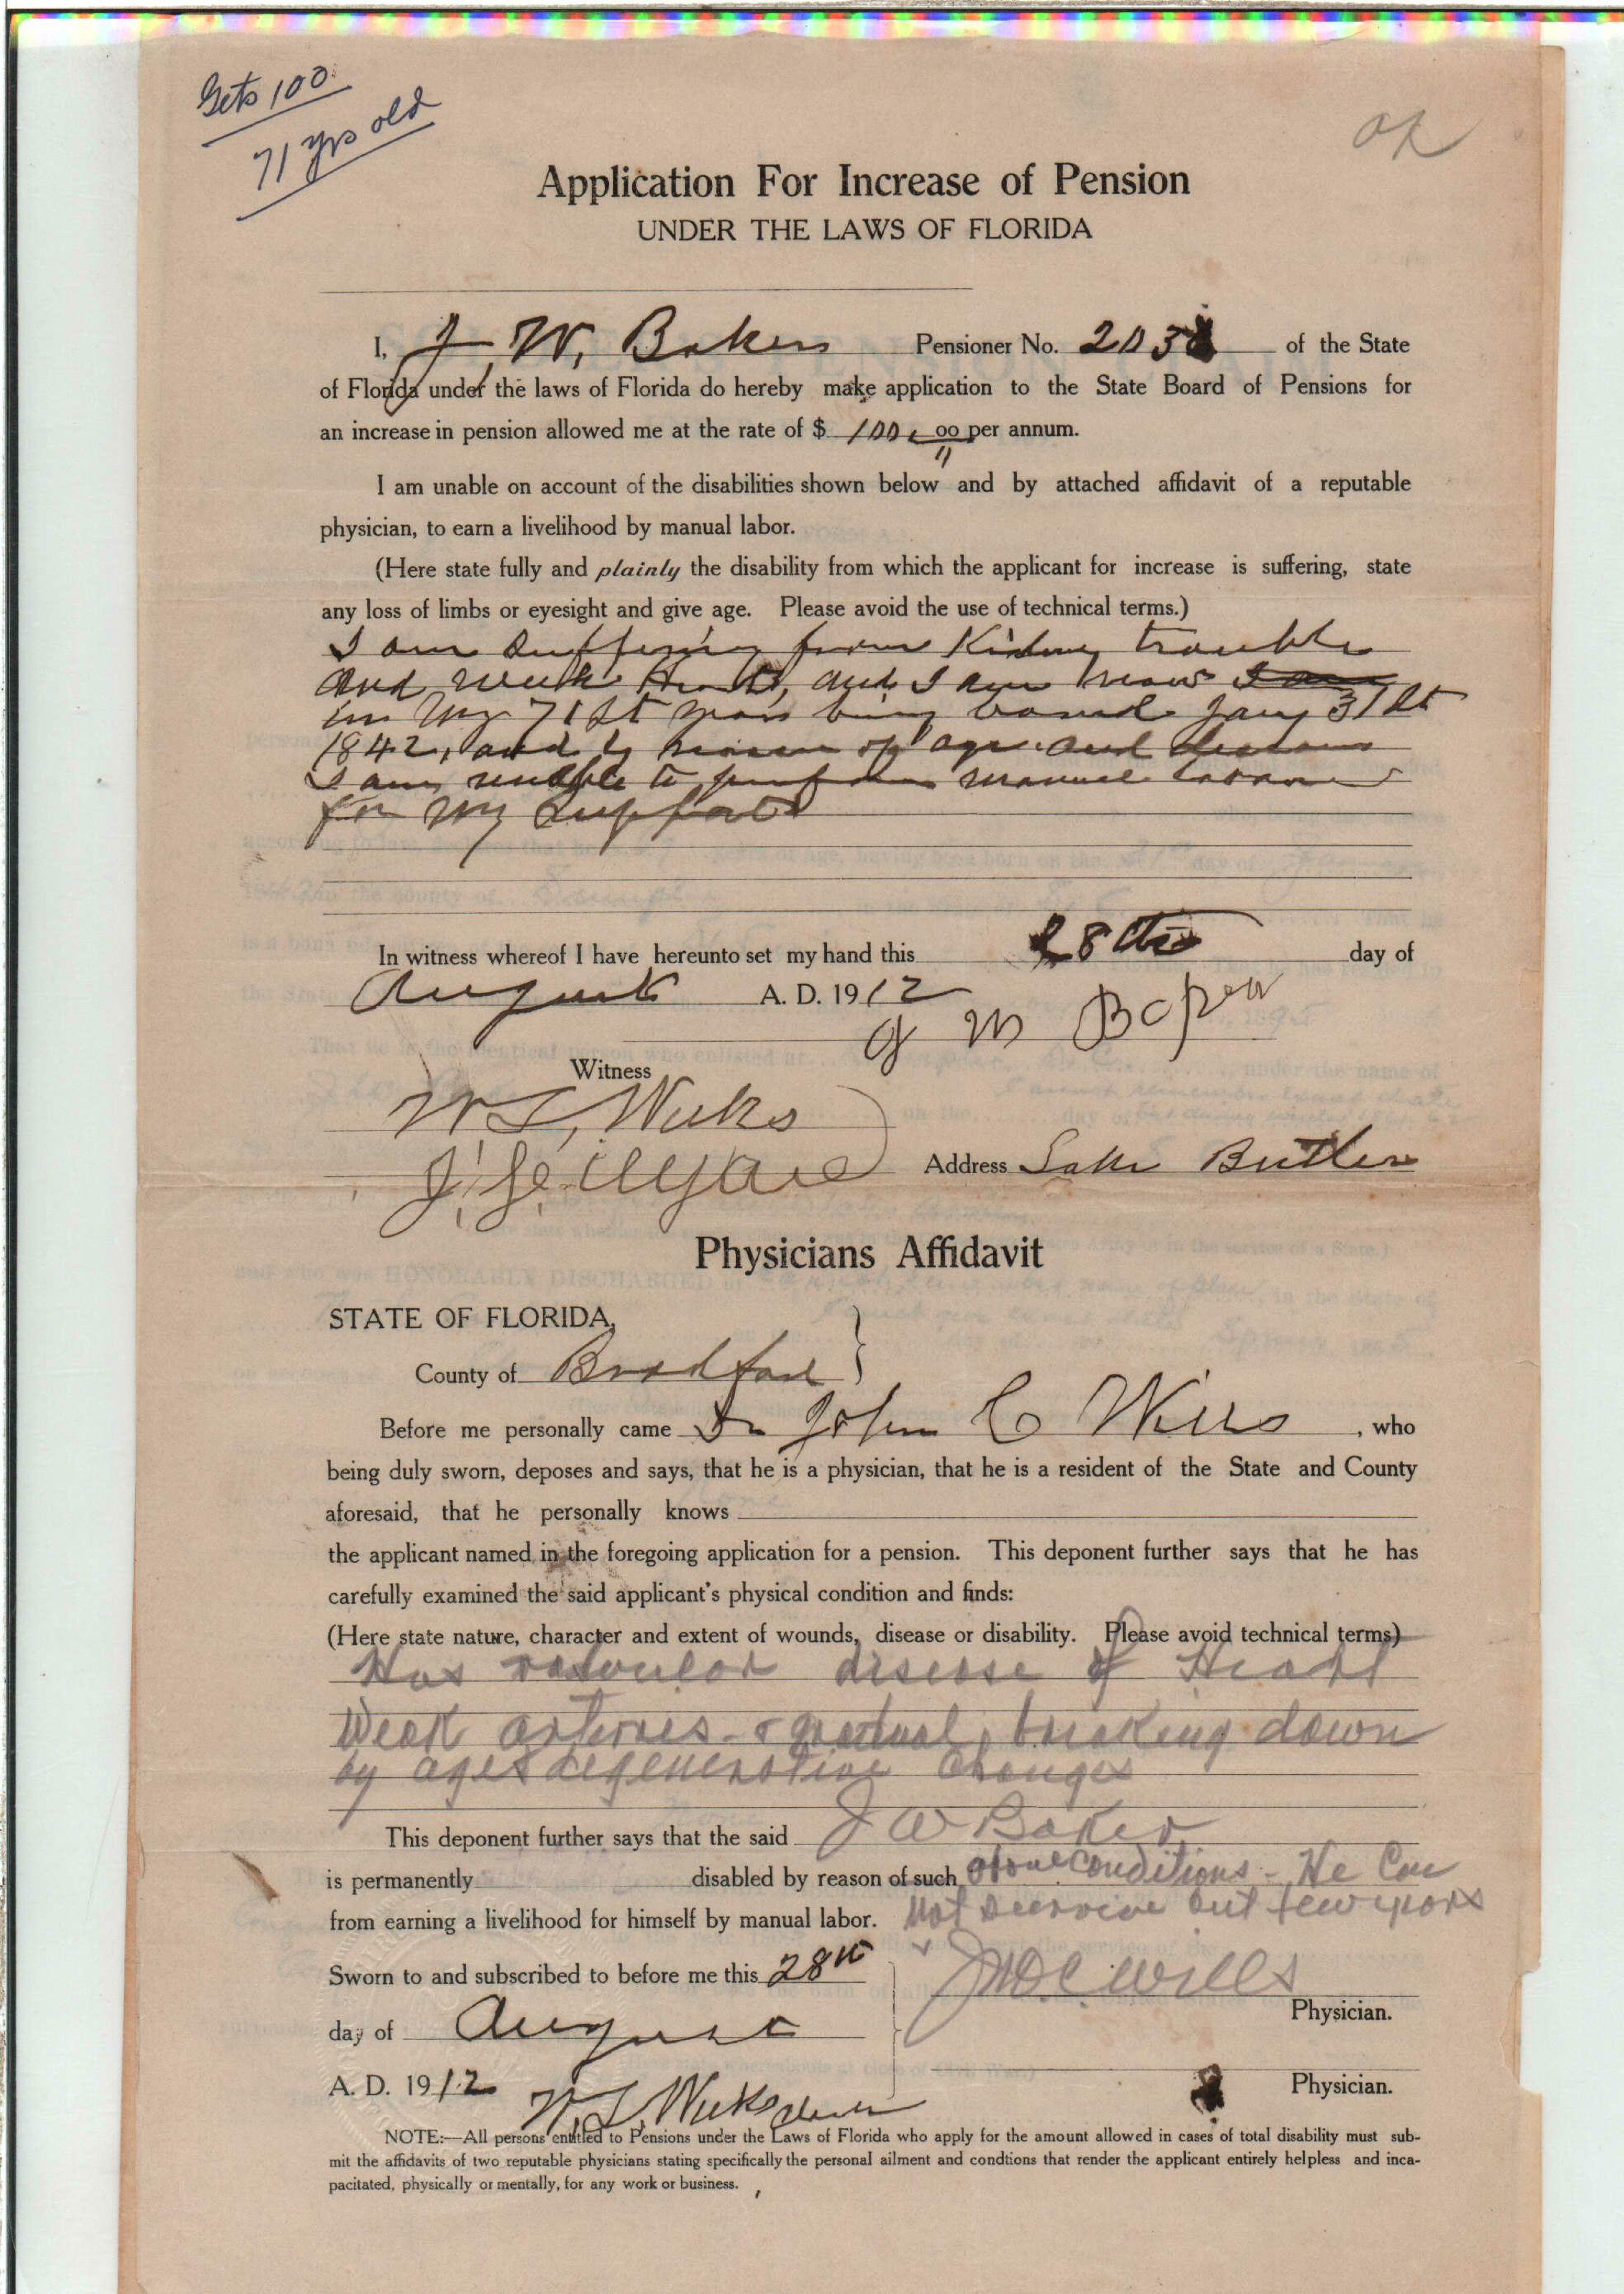 Gets 100
71 yrs old
OK
Application For Increase of Pension
UNDER THE LAWS OF FLORIDA
I, J. W. Baker Pensioner No. 203 of the State
of Florida under the laws of Florida do hereby make application to the State Board of Pensions for
an increase in pension allowed me at the rate of $ 100.00 per annum.
I am unable on account of the disabilities shown below and by attached affidavit of a reputable
physician, to earn a livelihood by manual labor.
(Here state fully and plainly the disability from which the applicant for increase is suffering, state
any loss of limbs or eyesight and give age. Please avoid the use of technical terms.)
I am suffering from Kidney trouble
and weak Heart, and I am now I am
in my 71st year being borned Jany 31st
1842, and by reason of age and disease
I am unable to perform manuel labor
for my support
In witness whereof I have hereunto set my hand this 28th day of
August A. D. 1912
J W Baker
Witness
W. L. Weeks
J. Address Lake Butler
Physicians Affidavit
STATE OF FLORIDA,
County of Bradford }
Before me personally came Dr John C Wills, who
being duly sworn, deposes and says, that he is a physician, that he is a resident of the State and County
aforesaid, that he personally knows
the applicant named in the foregoing application for a pension. This deponent further says that he has
carefully examined the said applicant's physical condition and finds:
(Here state nature, character and extent of wounds, disease or disability. Please avoid technical terms)
Has valvular disease of Heart
Weak arteries & gradual breaking down
by age & degenerative changes
This deponent further says that the said J W Baker
is permanently disabled by reason of such above conditions - He can
from earning a livelihood for himself by manual labor. not survive but few years
Sworn to and subscribed to before me this 28th
Jno C Wills
Physician.
day of August
A. D. 1912
Physician.
W. L. Weeks
NOTE:—All persons entitled to Pensions under the Laws of Florida who apply for the amount allowed in cases of total disability must sub-
mit the affidavits of two reputable physicians stating specifically the personal ailment and condtions that render the applicant entirely helpless and inca-
pacitated, physically or mentally, for any work or business.